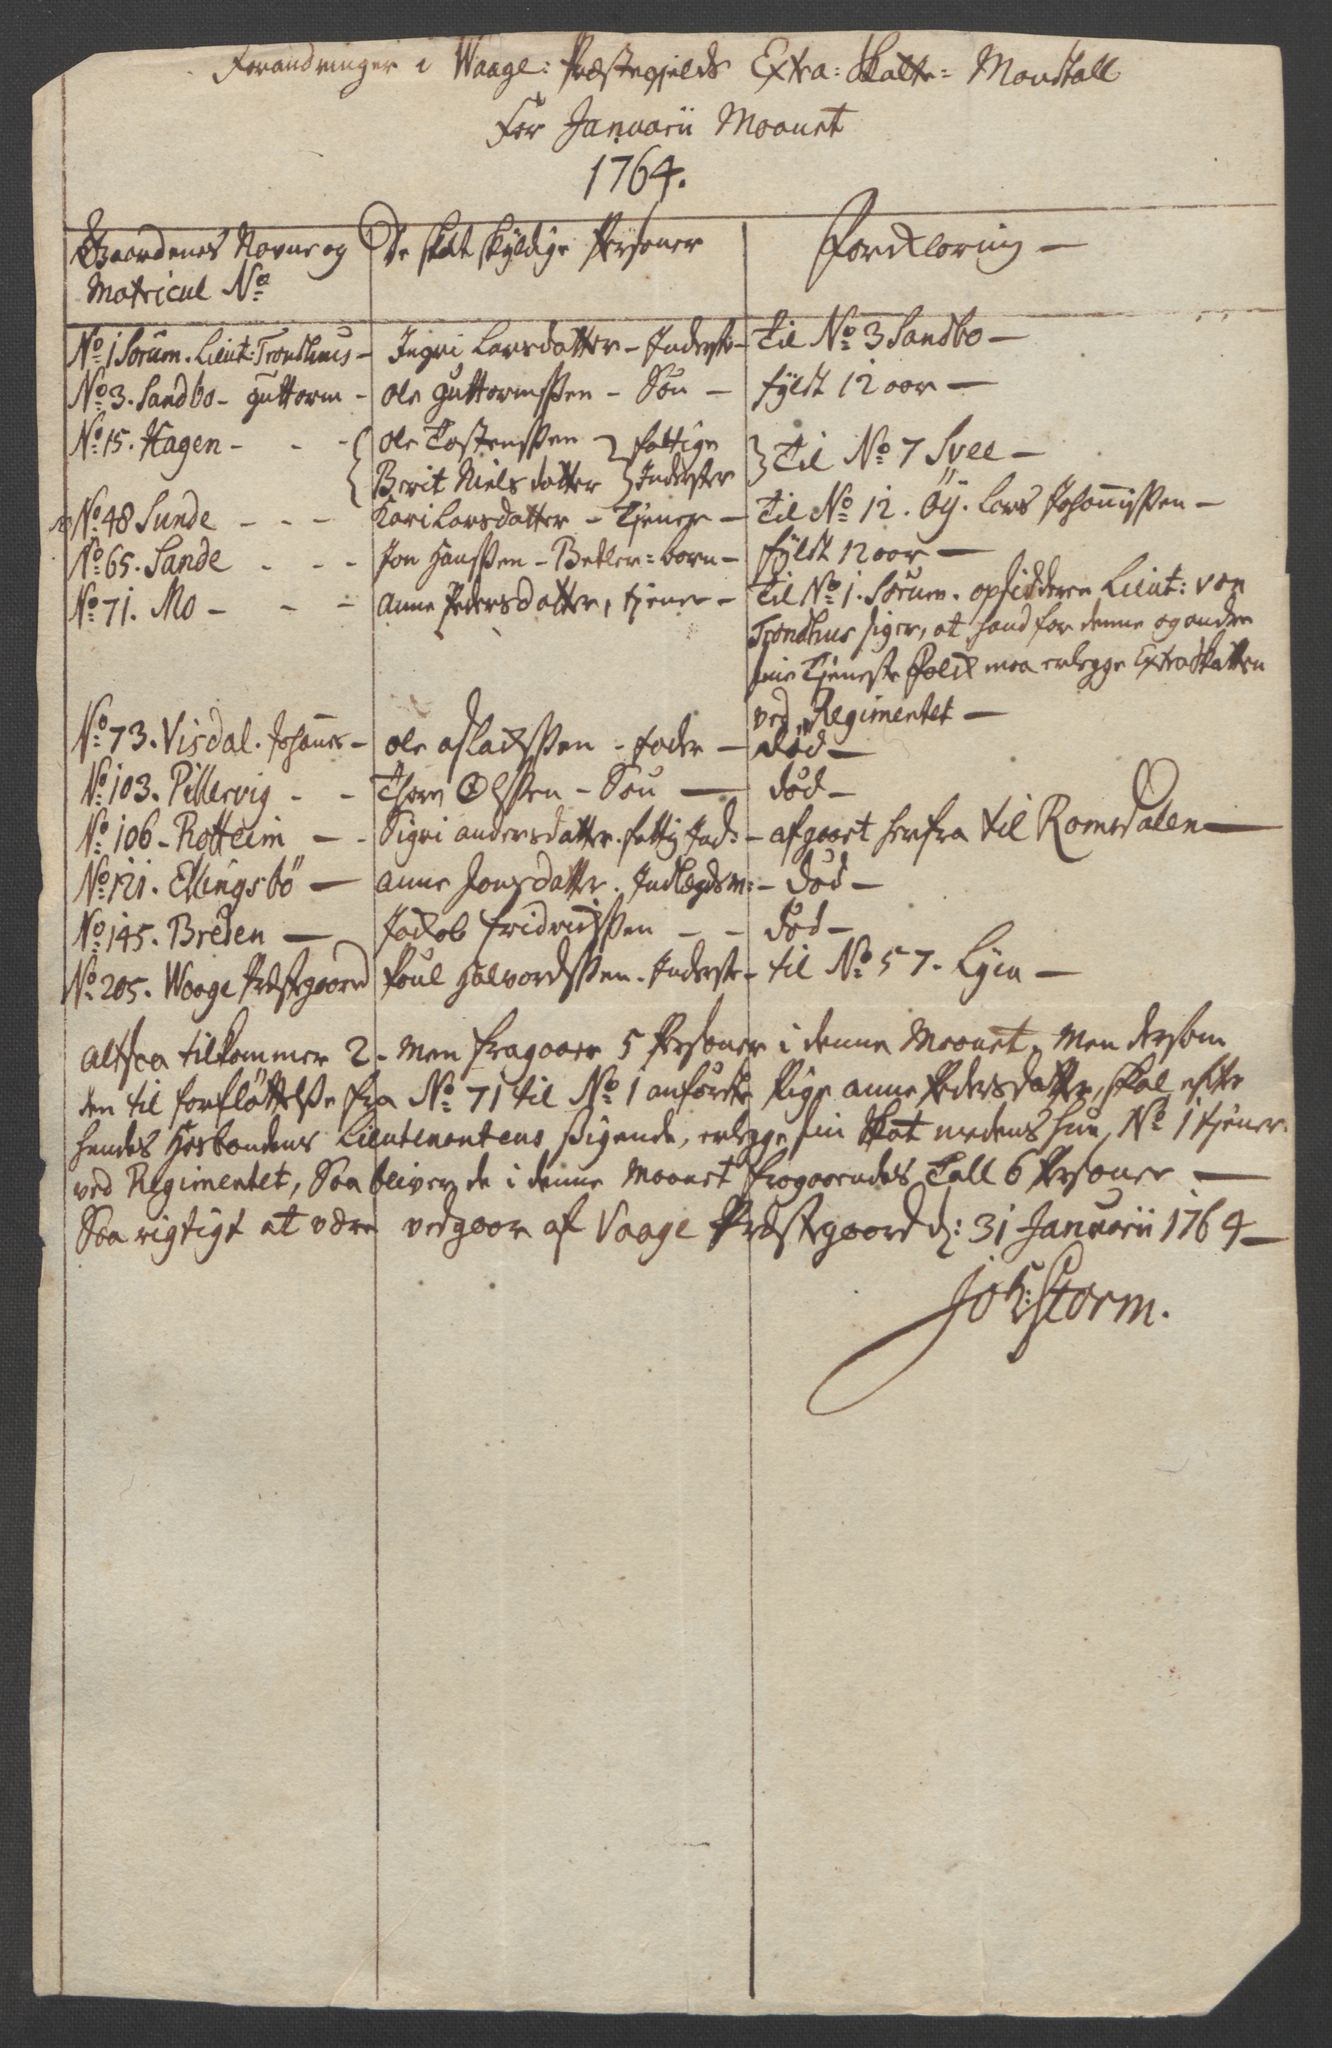 Forandringer i Waage: Præstegjelds Extra: Skatte= Mandtall
For Januarii Maanet
1764.
Gaardenes Navne og De skat skyldige Persohner Forklaring —
Matricul No
No 1 Sorum. Lieut: Trondhuus — Ingri Larsdatter — Inderste — til No 3 Sandbo —
No 3. Sandbo — Guttorm — Ole Guttormssen — Søn — fyldt 12 aar —
No 15. Hagen - - - { Ole Tostenssen } fattige } Til No 7 Svee —
{ Berit Nielsdatter } Inderster
No 48 Sunde - - - Kari Larsdatter — Tjener — til No 12. Öÿ. Lars Johannissen —
No 65. Sande - - - Jon Hanssen — Betler= barn — fyldt 12 aar —
No 71. Mo - - - Anne Pedersdatter, tjener — til No 1. Sorum. opsidderen Lieut: von
Trondhus siger, at hand for denne og andre
sine Tjeneste Folck maa erlegge Extra Skatten
ved Regimentet —
No 73. Visdal. Johannes — Ole Aslachssen — fader — död —
No 103. Pillervig - - Thore Olssen — Søn — död —
No 106 - Rotteim — - Sigri Andersdatter fattig Ind: — afgaaet herfra til Romsdalen —
No 121. Ellingsbö — Anne Jonsdatter. Indlægdsm: — död —
No 145. Breden — Jackob Fridrichssen - - död —
No 205. Waage Præstgaard Poul Halvordssen. Inderste — til No 57. Lyen —
Altsaa tilkommer 2 — men fragaaer 5 Persohner i denne Maanet. Men dersom
den til forflöttelse fra No 71 til No 1 anförte Pige Anne Pedersdatter, skal efter
hendes Hosbondens Lieutenantens sigende, erlegge sin Skat medens hun No 1 tjener
ved Regimentet, saa bliver de i denne Maanet fragaaendes Tall 6 Persohner —
Saa rigtigt at være vedgaar af Vaage Præstgaard d: 31 Januarii 1764 —
Joh: Storm.